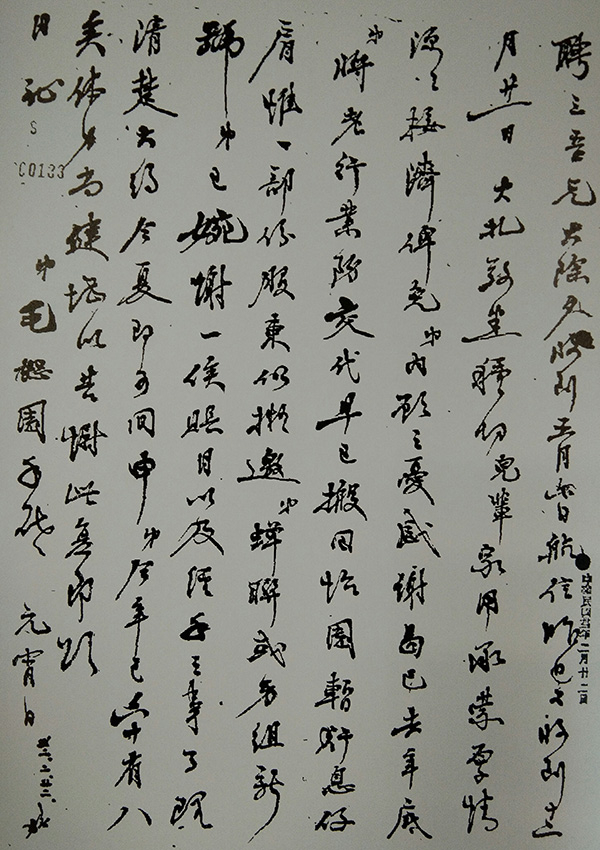 聘三吾兄大除夕收到五月日航信昨又收到十二
月廿一日 大札敬悉種切兒輩家用承蒙厚情
源々接濟俾免弟內顧之憂感謝曷已去年底
弟將老行業務交代早已搬回怡園暫舒息仔
肩惟一部份股東仍擬邀弟蟬聯或另組新
號弟已婉謝一俟賬目以及經手之事了既
清楚大約今夏即可回申弟今年已六十有八
矣体力尚健堪以告慰此复即頌
日祉 弟毛懋園手啓 元宵日
S
C0133
中華民國年二月廿二日